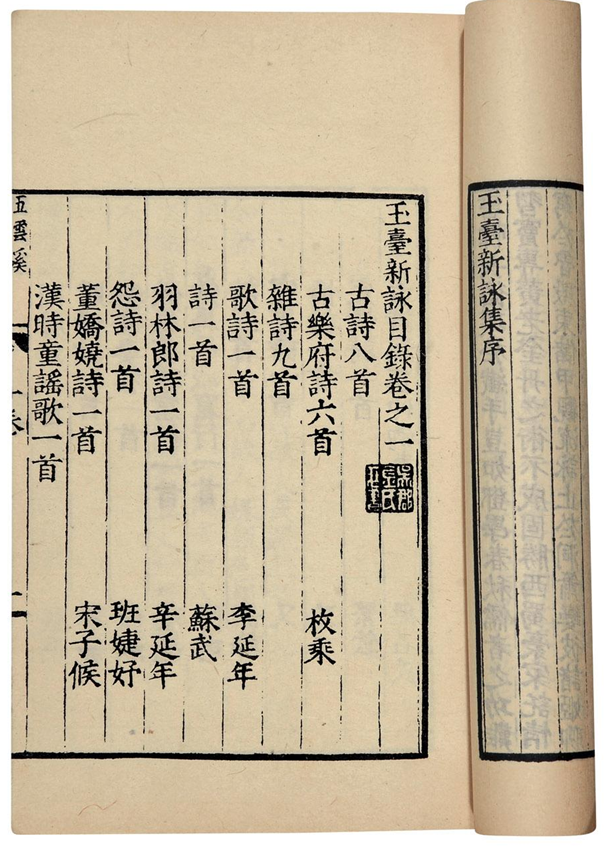 玉臺新詠集序
玉臺新詠目錄卷之一
古詩八首
古樂府詩六首 枚乘
雜詩九首
歌詩一首 李延年
詩一首 蘇武
羽林郎詩一首 辛延年
怨詩一首 班婕妤
董嬌嬈詩一首 宋子候
漢時童謠歌一首
五雲溪
一卷
二